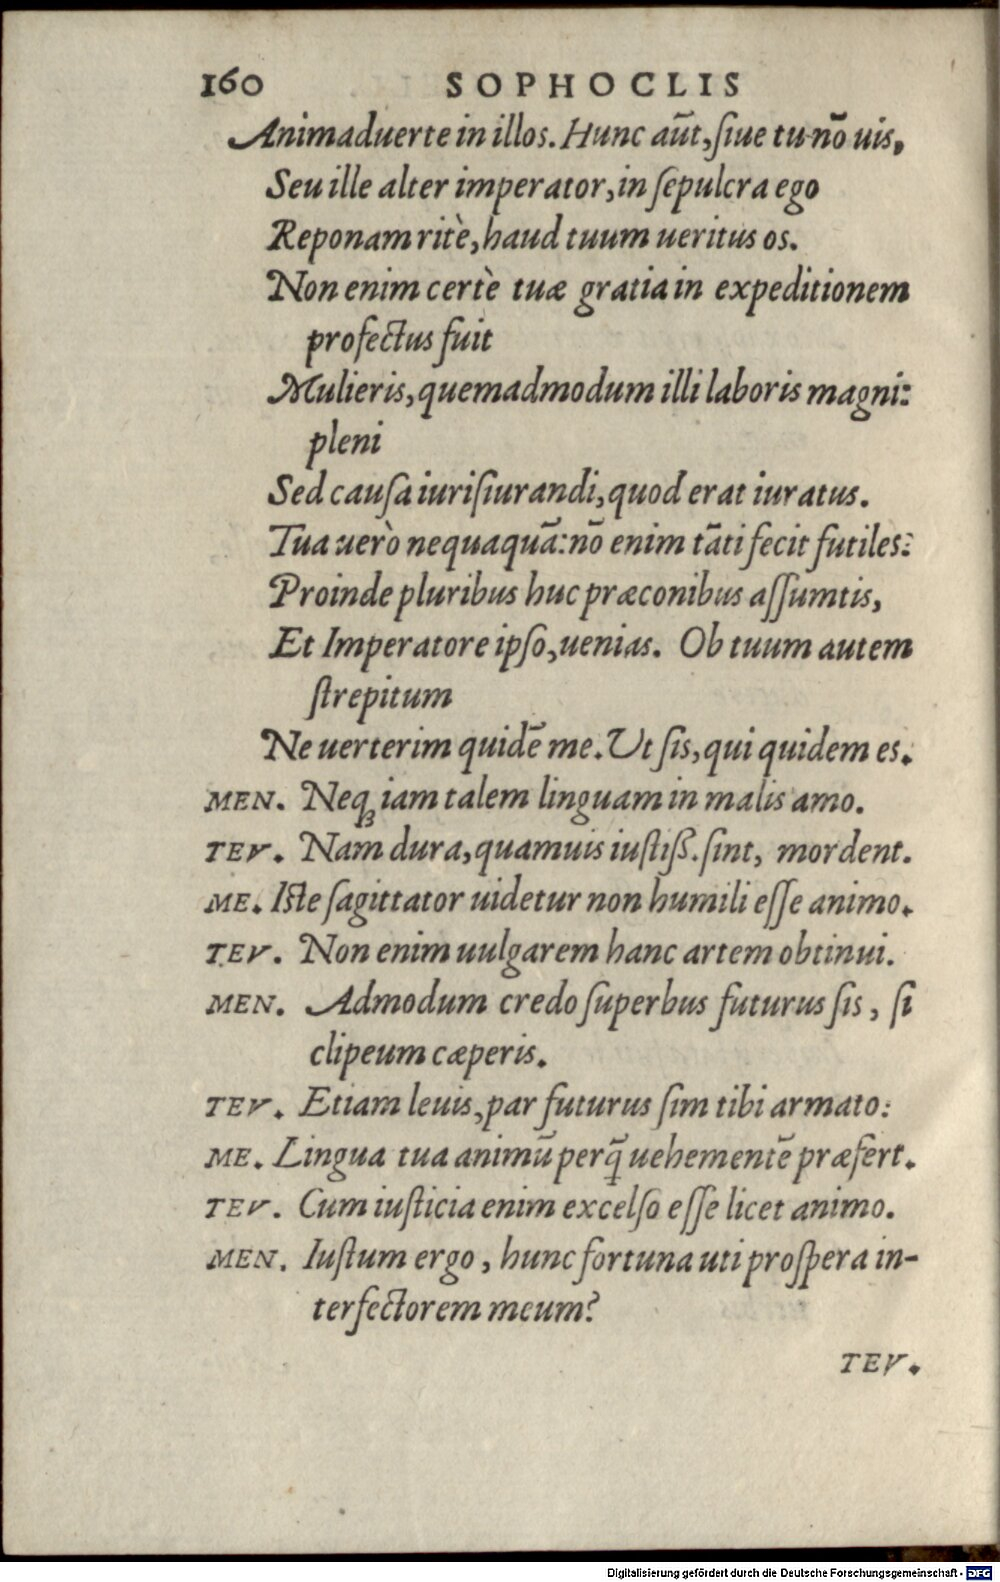 160 SOPHOCLIS
Animaduerte in illos. Hunc aūt, ſiue tu nō uis,
Seu ille alter imperator, in ſepulcra ego
Reponam ritè, haud tuum ueritus os.
Non enim certè tuæ gratia in expeditionem
profectus fuit
Mulieris, quemadmodum illi laboris magni:
pleni
Sed cauſa iuriſiurandi, quod erat iuratus.
Tua uerò nequaquā: nō enim tāti fecit futiles:
Proinde pluribus huc præconibus aſſumtis,
Et Imperatore ipſo, uenias. Ob tuum autem
ſtrepitum
Ne uerterim quidē me. Ut ſis, qui quidem es.
MEN. Neqꝫ iam talem linguam in malis amo.
TEV. Nam dura, quamuis iuſtiß. ſint, mordent.
ME. Iſte ſagittator uidetur non humili eſſe animo.
TEV. Non enim uulgarem hanc artem obtinui.
MEN. Admodum credo ſuperbus futurus ſis, ſi
clipeum cæperis.
TEV. Etiam leuis, par futurus ſim tibi armato:
ME. Lingua tua animū perq̃ uehementē præfert.
TEV. Cum iuſticia enim excelſo eſſe licet animo.
MEN. Iuſtum ergo, hunc fortuna uti proſpera in-
terfectorem meum?
TEV.
Digitalisierung gefördert durch die Deutsche Forschungsgemeinschaft - DFG